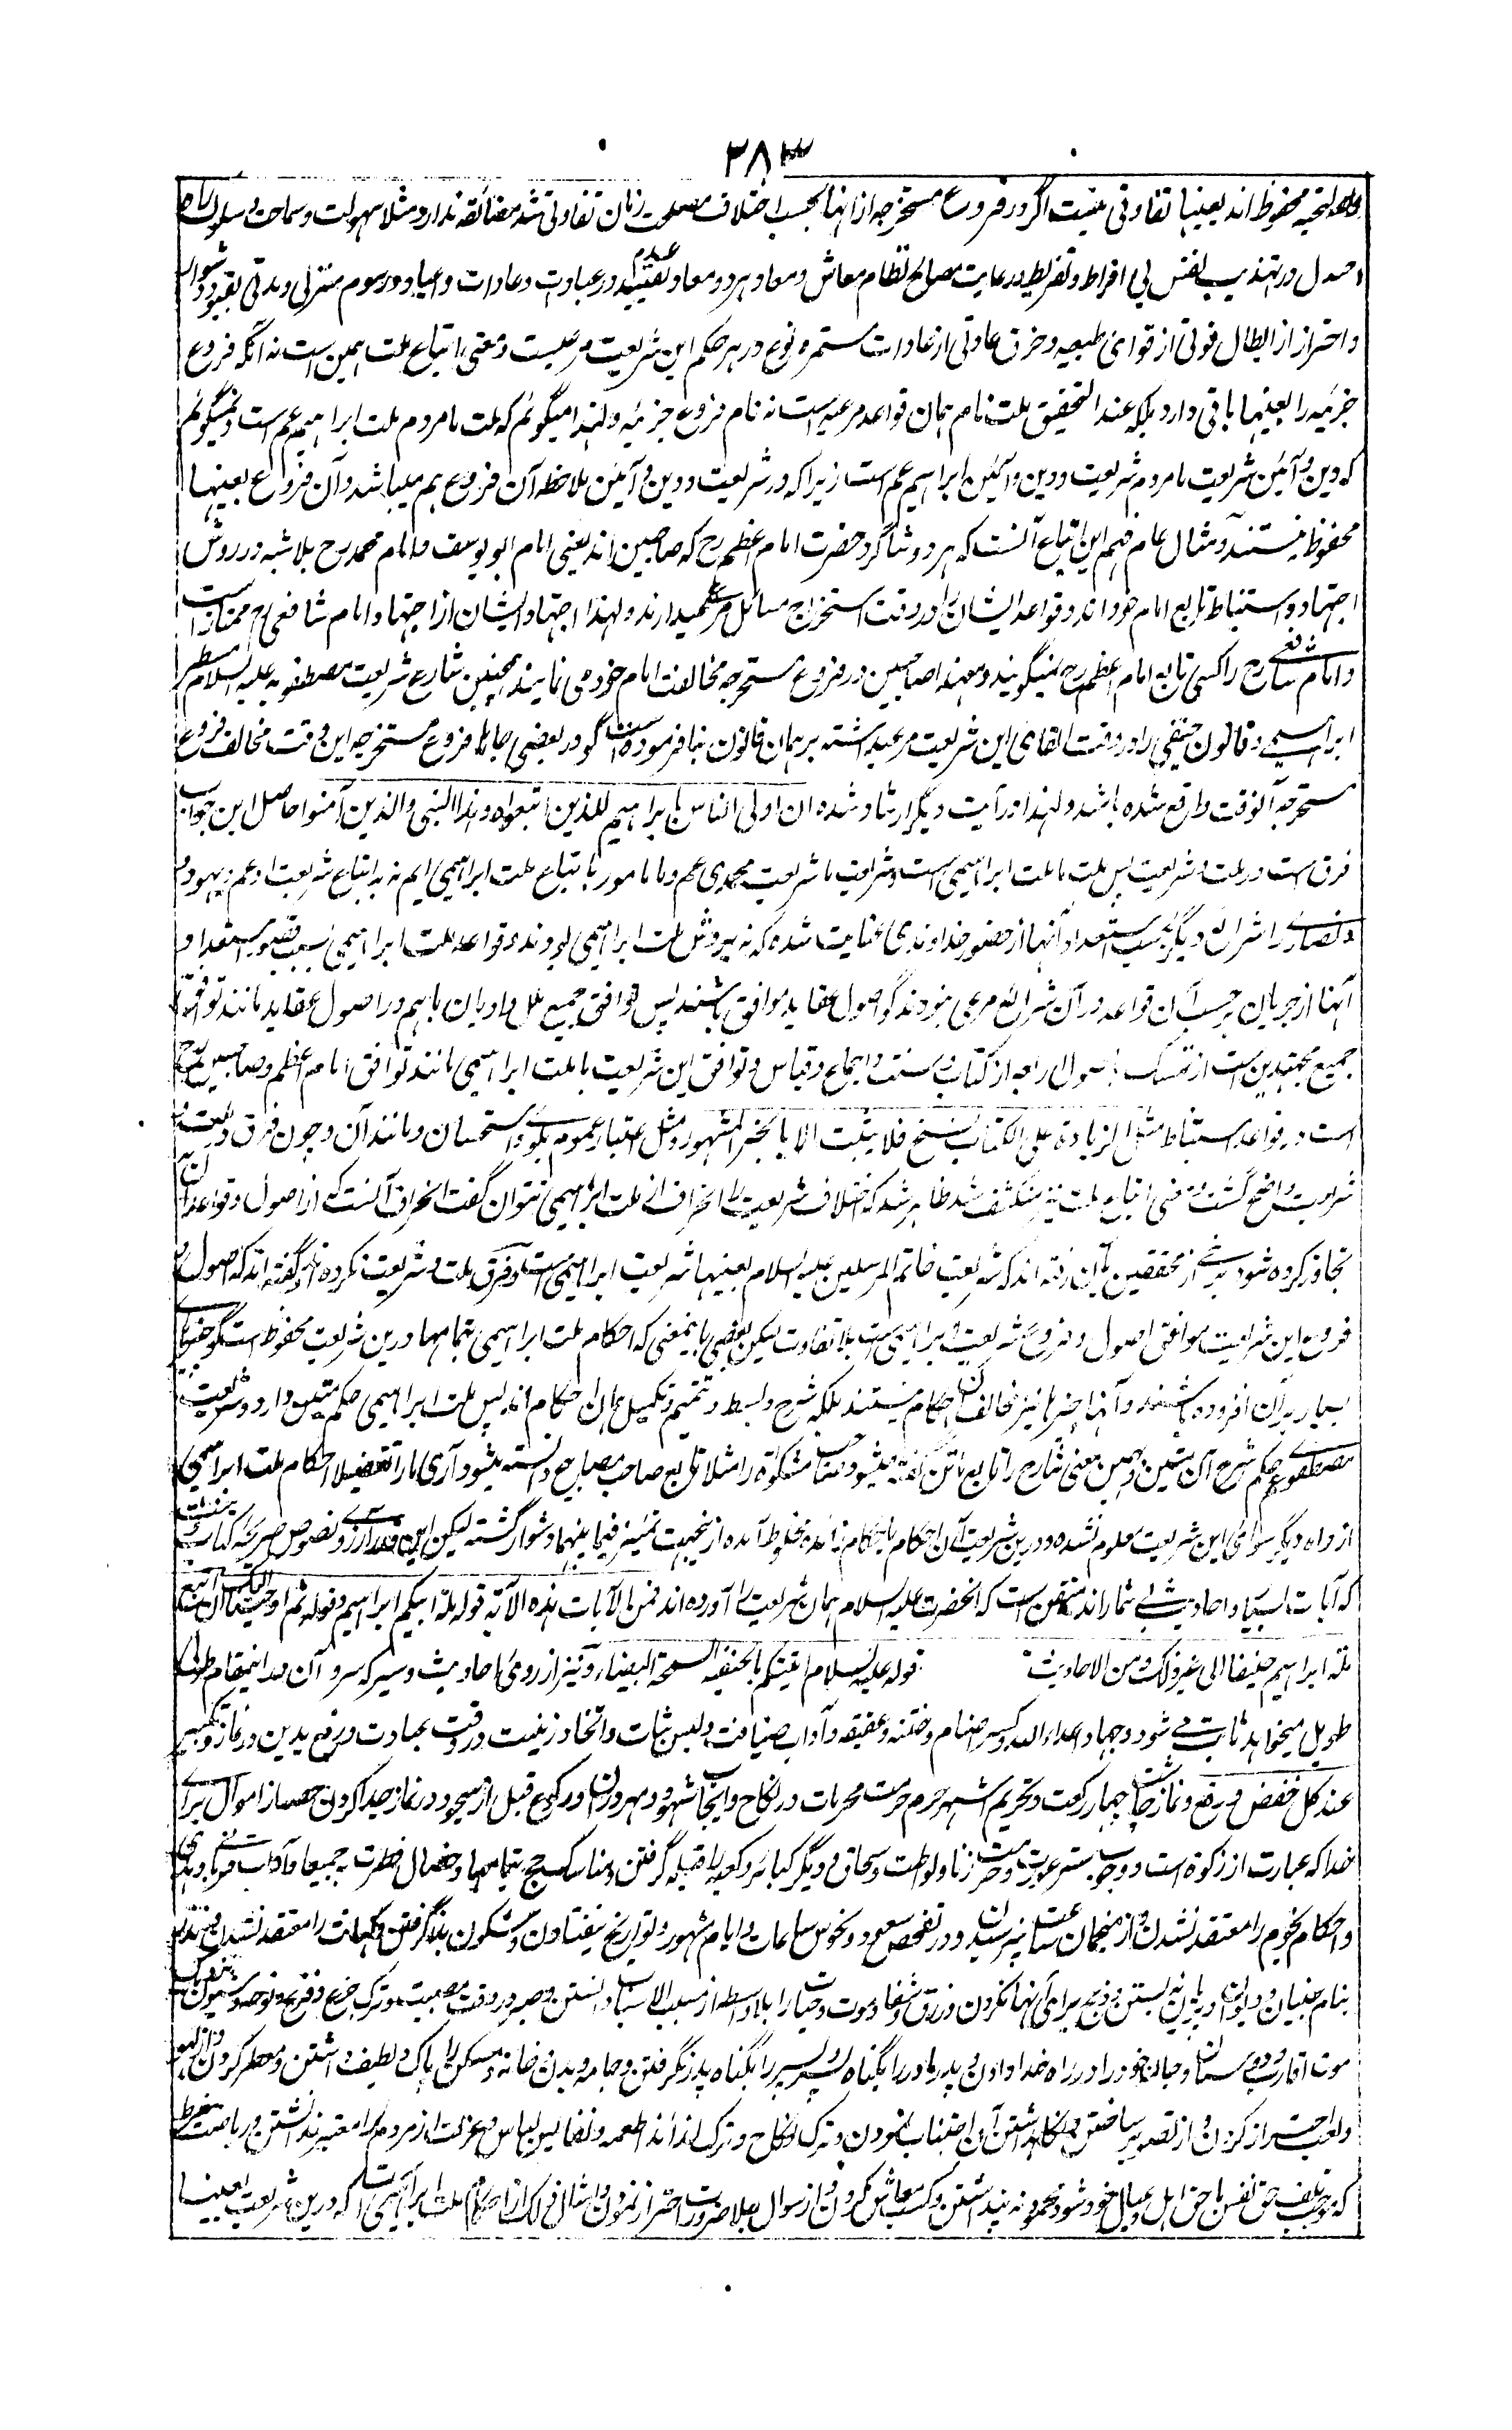 ۳۸۳
محفوظ اند بعینها تفاوتی نیست اگر در فروع مستخرجه از انها بحسب اختلاف مصلحت زمان تفاوتی شد مضائقه ندارد مثلا سهولت و سماحت و سلوک راه
عدل در تهذیب نفس بی افراط و تفریط و رعایت مصالح نظام معاش و معاد هر دو و عدم تقیید در عبادات و عادات و اعیاد و رسوم منزلی و مدنی بقیود دشوار
و احتراز از ابطال قوتی از قوای طبعیه و خرق عادتی از عادات مستمره نوع در هر حکم این شریعت مرعیست و معنی اتباع ملت همین است نه آنکه فروع
جزئیه را بعینها باقی دارد بلکه عند التحقیق ملت نام همان قواعد مرعیه است نه نام فروع جزئیه و لهذا میگوئم که ملت ما مردم ملت ابراهیم عم است و نمیگوئم
که دین و آئین شریعت ما مردم شریعت و دین و آئین ابراهیم عم است زیرا که در شریعت و دین و آئین ملاحظه آن فروع هم میباشد و آن فروع بعینها
محفوظ نیستند و مثال عام فهم این اتباع آنست که هر دو شاگرد حضرت امام اعظم رح که صاحبین اند یعنی امام ابو یوسف و امام محمد رح بلا شبه در روش
اجتهاد و استنباط تابع امام خود اند و قواعد ایشان را در وقت استخراج مسائل مرعی میدارند و لهذا اجتهاد ایشان از اجتهاد امام شافعی رح ممتاز است
و امام شافعی رح را کسی تابع امام اعظم رح نمیگویند و معهذا صاحبین در فروع مستخرجه مخالفت امام خود می نمایند همچنین شارع شریعت مصطفویه علیه السلام
ابراهیمی و قانون حنیفی را در وقت القای این شریعت مرعیداشته بر همان قانون بنا فرموده است گو در بعضی جاها فروع مستخرجه این وقت مخالف فروع
مستخرجه آنوقت واقع شده باشد و لهذا در آیت دیگر ارشاد شده ان اولی الناس بابراهیم للذین اتبعوه و هذا النبی والذین آمنوا حاصل این جواب
فرق است در ملت و شریعت پس ملت ما ملت ابراهیمی است و شریعت ما شریعت محمدی عم و ما مامور باتباع ملت ابراهیمی ایم نه به اتباع شریعت او عم و یهود و
نصاری را شرائع دیگر بحسب استعداد آنها از حضور خداوندی عنایت شده که نه بروش ملت ابراهیمی بودند و قواعد ملت ابراهیمی بسبب قصور استعداد
آنها از جریان بر حسب آن قواعد در آن شرائع مرعی نبودند گو اصول عقاید موافق باشند پس توافق جمیع ملل و ادیان باهم در اصول عقاید مانند توافق
جمیع مجتهدین است از تمسک باصول اربعه از کتاب و سنت و اجماع و قیاس و توافق این شریعت با ملت ابراهیمی مانند توافق امام اعظم و صاحبین رح
است در قواعد استنباط مثل الزیادة علی الکتاب نسخ فلا یثبت الا بالخبر المشهور و مثل اعتبار عموم بلوی و استحسان و مانند آن و چون فرق ملت و
شریعت واضح گشت و معنی اتباع ملت نیز منکشف شد ظاهر شد که اختلاف شریعت را انحراف از ملت ابراهیمی نتوان گفت انحراف آنست که از اصول و قواعد آن
تجاوز کرده شود بعضی از محققین بآن رفته اند که شریعت خاتم المرسلین علیه السلام بعینها شریعت ابراهیمی است و فرق ملت و شریعت نکرده اند و گفته اند که اصول و
فروع این شریعت موافق اصول و فروع شریعت ابراهیمی است بلا تفاوت لیکن بعضی باینمعنی که احکام ملت ابراهیمی بتمامها درین شریعت محفوظ است گو چیزهای
بسیار بر آن افزوده باشند و آنها چیزها نیز مخالف آن احکام نیستند بلکه شرح و بسط و تتمیم و تکمیل همان احکام اند پس ملت ابراهیمی حکم متین دارد و شریعت
مصطفوی حکم شرح آن متین و بهمین معنی شارح را تابع ماتن گفته میشود و صاحب مشکوة را مثلا تابع صاحب مصابیح دانسته میشود آری ما را تفصیلا احکام ملت ابراهیمی
از راه دیگر سوای این شریعت معلوم نشده و درین شریعت آن احکام باحکام زائده مخلوط آمده ازینجهت تمیز فیما بینهما دشوار گشته لیکن این قدر از نصوص صریحه کتاب و سنت
که آیات بسیار و احادیث بی شمار اند متیقن است که آنحضرت علیه السلام همان شریعت را آورده اند فمن الآیات هذه الآیة قوله ملة ابیکم ابراهیم و قوله ثم اوحینا الیک ان اتبع
ملة ابراهیم حنیفا الی غیر ذلک و من الاحادیث قوله علیه السلام اتیتکم بالحنیفیة السمحة البیضاء و نیز از روی احادیث و سیر که سرد آن درینمقام طول
طویل میخواهد ثابت می شود و جهاد اعداء الله و کسر اصنام و ختنه و عقیقه و آداب ضیافت و لبس ثیاب و اتخاذ زینت در وقت عبادت و رفع یدین در نماز و تکبیر
عند کل خفض و رفع و نماز چاشت چهار رکعت و تحریم اشهر حرم و حرمت محرمات در نکاح و ایجاب شهود و مهر و رکوع قبل از سجود در نماز و جدا کردن حصه از اموال برای
خدا که عبارت از زکوة است و وجوب ستر عورت و حرمت زنا و لواطت و سحاق و دیگر کبائر و کعبه را قبله گرفتن و مناسک حج بتمامها و خصال فطرت جمیعا و آداب قربانی
و احکام نجوم را معتقد نشدن و از منجمان نپرسیدن و در تفحص سعود و نحوس ساعات و ایام و شهور و تواریخ نیفتادن و شگون بد نگرفتن و کهانت را معتقد نشدن و نذر
بنام جنیان و دیوان و پریان نه بستن و ذبح برای آنها نکردن و رزق و شفا و موت و حیات را بلا واسطه از مسبب الاسباب دانستن و صبر در وقت مصیبت و ترک جزع و فزع و نوحه و شیون
موت اقارب و دوستان و جان و مال خود را در راه خدا دادن و پدر و مادر را بگناه پسر و پسر را بگناه پدر نگرفتن و جامه و بدن و خانه و مسکن را پاک و لطیف داشتن و معطر کردن
و لعب احتراز کردن و از تصویر ساختن و نگاهداشتن آن اجتناب نمودن و ترک نکاح و ترک لذائذ اطعمه و نفایس لباس و عزلت از مردم را معتبر نداشتن و ریاضت مفرط
که موجب تلف حق نفس یا حق اهل و عیال خود شود محمود نه پنداشتن و کسب معاش کردن و از سوال بلا ضرورت احتراز نمودن و امثال ذلک از احکام ملت ابراهیمی است که درین شریعت بعینها